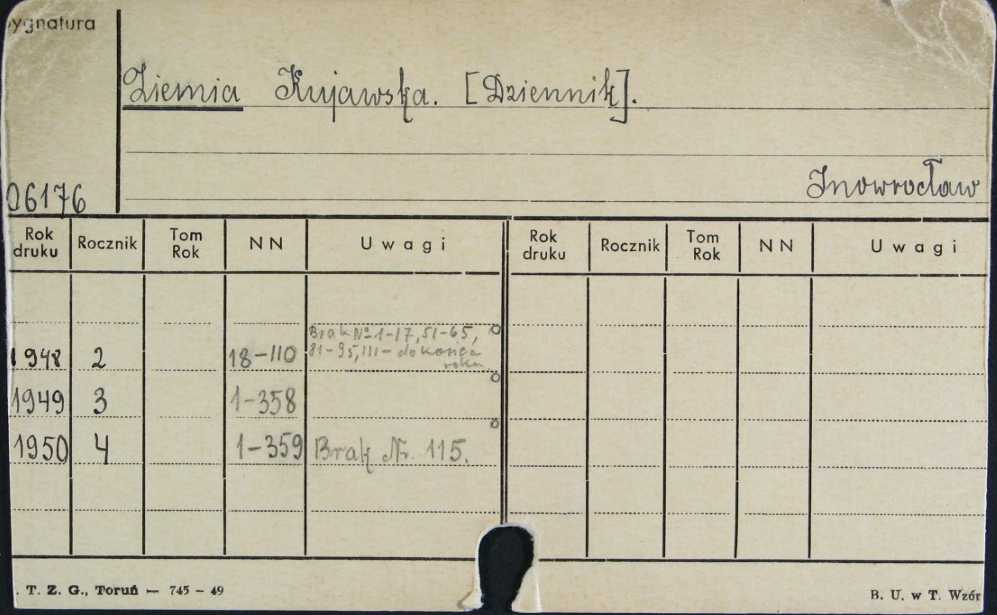 ygnatura
Ziemia Kujawska. [Dziennik].
Inowrocław
06176
Rok druku Rocznik Tom Rok NN Uwagi Rok druku Rocznik Tom Rok NN Uwagi
Brak No 1-17, 51-65,
1948 2 18-110 81-95, 111- do końca
roku
1949 3 1-358
1950 4 1-359 Brak Nr. 115.
. T. Z. G., Toruń — 745 - 49
B. U. w T. Wzór